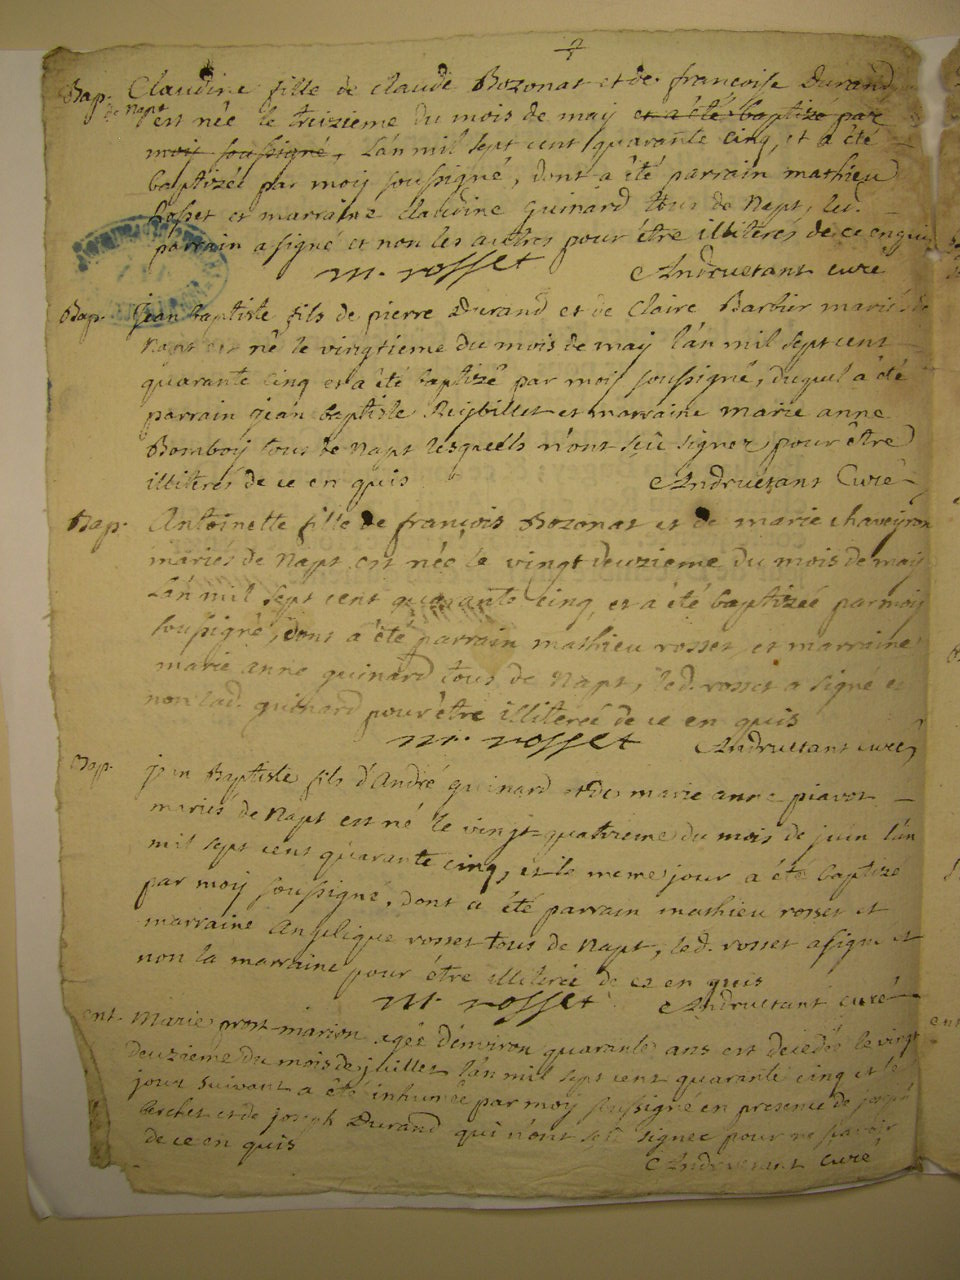 Bap. Claudine fille de claude Bozonat et de francoise Durand
de Napt est née le treizieme du mois de may et a été baptize par
moy soussigné, l'an mil sept cent quarante cinq, et a été
baptizée par moy soussigné, dont a été parrain mathieu
Rosset et marraine claudine guinard tous de Napt, led.
parrain a signé et non les autres pour être illitéres de ce enquis
m. rosset Andruetant curé
Bap. Jean baptiste fils de pierre Durand et de Claire Barbier mariés de
Napt est né le vingtieme du mois de may l'an mil sept cent
quarante cinq et a été baptizé par moy soussigné, duquel a été
parrain jean baptiste et marraine marie anne
Bomboy tous de Napt lesquells n'ont sçû signer pour être
illitéres de ce en quis Andruetant Curé
Bap. Antoinette fille de françois Bozonat et de marie chaveyron
mariés de Napt est née le vingt deuzieme du mois de may
l'an mil sept cent quarante cinq, et a été baptizée par moy
soussigné, dont a été parrain mathieu rosset et marraine
marie anne guinard tous de Napt, led. rosset a signé et
non lad. guinard pour être illiterée de ce en quis
m. rosset Andruetant curé
Bap. jean Baptiste fils d'André guinard et de marie anne piavot
mariés de Napt est né le vingt-quatrieme du mois de juin l'an
mil sept cent quarante cinq, et le meme jour a été baptizé
par moy soussigné, dont a été parrain mathieu rosset et
marraine Angelique rosset tous de Napt, led. rosset a signé et
non la marraine pour être illiterée de ce en quis
m. rosset Andruetant curé
ent. Marie prost-marion agée d'environ quarante ans est decedée le vingt
deuzieme du mois de juillet l'an mil sept cent quarante cinq et le
jour suivant a été inhumée par moy soussigné en presence de joseph
berchet et de joseph Durand qui n'ont sçû signer pour ne sçavoir
de ce en quis
Andruetant curé